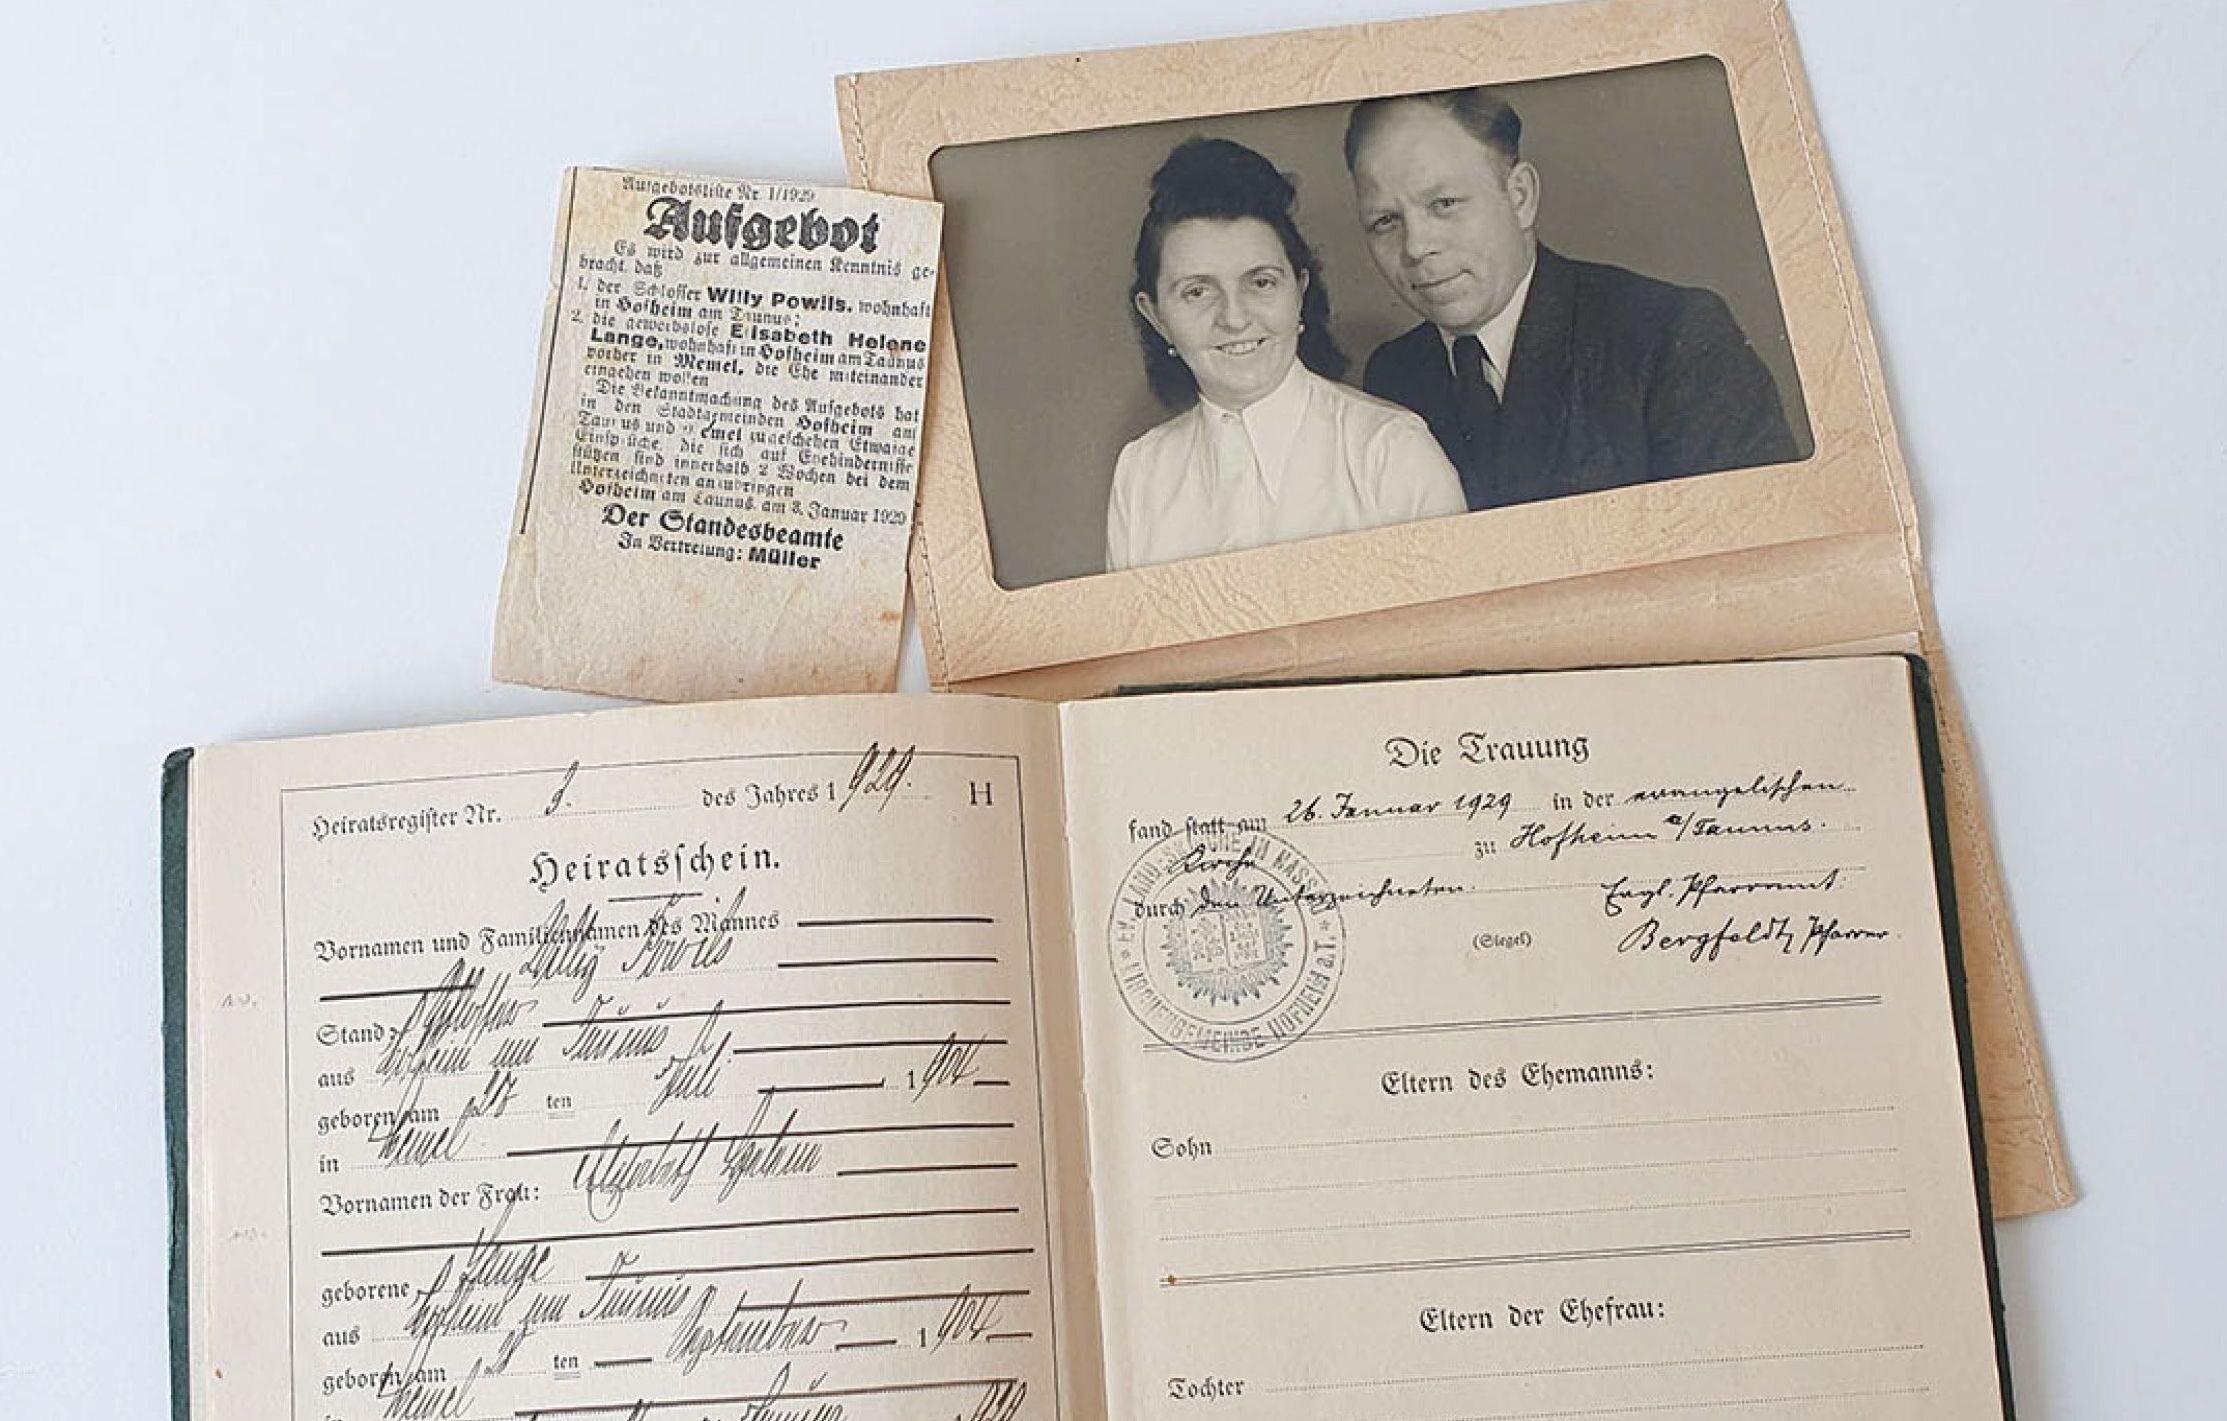 Aufgebotsliste Nr. 1/1929
Aufgebot
Es wird zur allgemeinen Kenntnis ge-
bracht, daß
1. der Schlosser Willy Powils, wohnhaft
in Hofheim am Taunus;
2. die gewerbslose Elisabeth Helene
Lange, wohnhaft in Hofheim am Taunus
vorher in Memel, die Ehe miteinander
eingehen wollen
Die Bekanntmachung des Aufgebots hat
in den Stadtgemeinden Hofheim am
Taunus und Memel zu geschehen Etwaige
Einsprüche, die sich auf Ehehindernisse
stützen sind innerhalb 2 Wochen bei dem
Unterzeichneten anzubringen
Hofheim am Taunus, am 3. Januar 1929
Der Standesbeamte
In Vertretung: Müller
Heiratsregister Nr. 3. des Jahres 1929. H
Heiratsschein.
Vornamen und Familiennamen des Mannes
Willy Powils
Stand: Schlosser
aus Hofheim am Taunus
geboren am ten Juli 1904
in Memel
Vornamen der Frau: Elisabeth Helene
geborene Lange
aus Hofheim am Taunus
geboren am ten September 1904
Memel
Die Trauung
fand statt am 26. Januar 1929 in der evangelischen
Kirche zu Hofheim a/Taunus.
durch den Unterzeichneten.
Evgl. Pfarramt
(Siegel) Bergfeldt, Pfarrer.
EV. LANDESKIRCHE IN NASSAU * KIRCHENGEMEINDE HOFHEIM a.T.
Eltern des Ehemanns:
Sohn
Eltern der Ehefrau:
Tochter